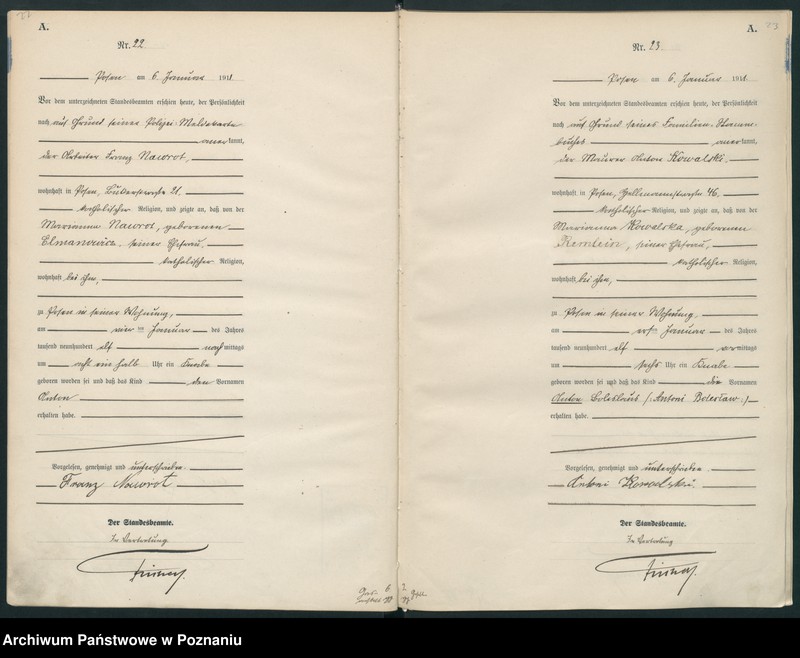 A.
Nr. 22
Posen am 6. Januar 1911
Vor dem unterzeichneten Standesbeamten erschien heute, der Persönlichkeit
nach auf Grund seiner Polizei-Meldekarte
anerkannt,
der Arbeiter Franz Nawrot,
wohnhaft in Posen, 21.
katholischer Religion, und zeigte an, daß von der
Marianna Nawrot, geborenen
Elmanowicz, seiner Ehefrau,
katholischer Religion,
wohnhaft bei ihm,
zu Posen in seiner Wohnung,
am Januar des Jahres
tausend neunhundert elf nachmittags
um acht ein halb Uhr ein Knabe
geboren worden sei und daß das Kind den Vornamen
Anton
erhalten habe.
Vorgelesen, genehmigt und unterschrieben
Franz Nawrot
Der Standesbeamte.
In Vertretung
A.
23
Nr. 23
Posen am 6. Januar 1911
Vor dem unterzeichneten Standesbeamten erschien heute, der Persönlichkeit
nach auf Grund seines Familien-Stamm-
buches anerkannt,
der Maurer Anton Kowalski,
wohnhaft in Posen, 46,
katholischer Religion, und zeigte an, daß von der
Marianna Kowalska, geborenen
Remlein, seiner Ehefrau,
katholischer Religion,
wohnhaft bei ihm,
zu Posen in seiner Wohnung,
am Januar des Jahres
tausend neunhundert elf vormittags
um sechs Uhr ein Knabe
geboren worden sei und daß das Kind die Vornamen
Anton Boleslaus (: Antoni Bolesław :)
erhalten habe.
Vorgelesen, genehmigt und unterschrieben
Antoni Kowalski.
Der Standesbeamte.
In Vertretung
Archiwum Państwowe w Poznaniu